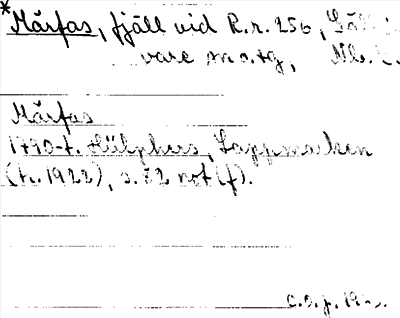 *Mårfas, fjäll vid R.r. 256, Gälli-
vare sn o. tg, Nb. l.
Mårfas
1790-t. Hülphers, Lappmarken
(tr. 1922), s. 72 not (f).